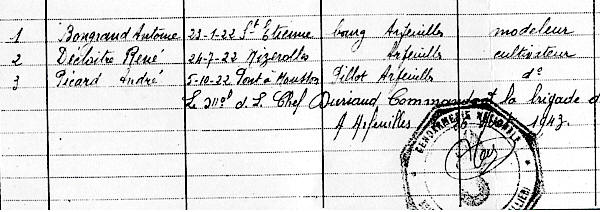 1 Bongrand Antoine 23-1-22 St Etienne bourg Arfeuilles modeleur
2 Décloitre René 24-7-22 Nizerolles Arfeuilles cultivateur
3 Picard André 5-10-22 Pont à Mousson Pillot Arfeuilles do
Le Mlº d. L. Chef Duriaud Commandant la brigade d
A Arfeuilles 1943.
GENDARMERIE NATIONALE